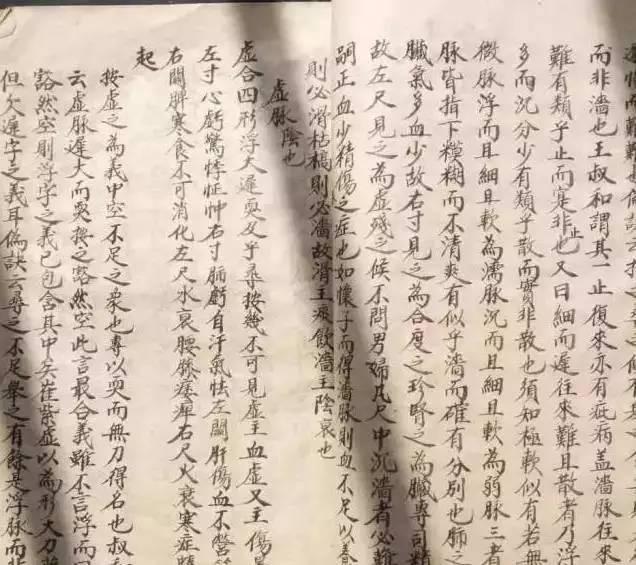 而非濇也王叔和謂其一止復來亦有疵病盖濇脉往來
難有類乎止而寔非止也又曰細而遲往來難且散者乃浮
多而沉分少有類乎散而實非散也須知極軟似有若無
微脉浮而且細且軟為濡脉沉而且細且軟為弱脉三者
脉皆指下糢糊而不清爽有似乎濇而確有分別也肺之
臟氣多血少故右寸見之為合度之珍腎之為臟專司精
故左尺見之為虛殘之候不問男婦凡尺中沉濇者必難
嗣正血少精傷之症也如懷子而得濇脉則血不足以養
則必滑枯槁則必濇故滑主痰飲濇主陰衰也
虛脉陰也
虛合四形浮大遲耎及乎尋按幾不可見虛主血虛又主傷
左寸心虧驚悸怔忡右寸肺虧自汗氣怯左關肝傷血不營
右関脾寒食不可消化左尺水衰腰膝痿痺右尺火衰寒症
起
按虛之為義中空不足之象也專以耎而無力得名也叔和
云虛脉遲大而耎按之豁然空此言最合義雖不言浮而曰
豁然空則浮字之義已包含其中矣崔紫虛以為形大力
但欠遲字之義耳偽訣云尋之不足舉之有餘是浮脉而非